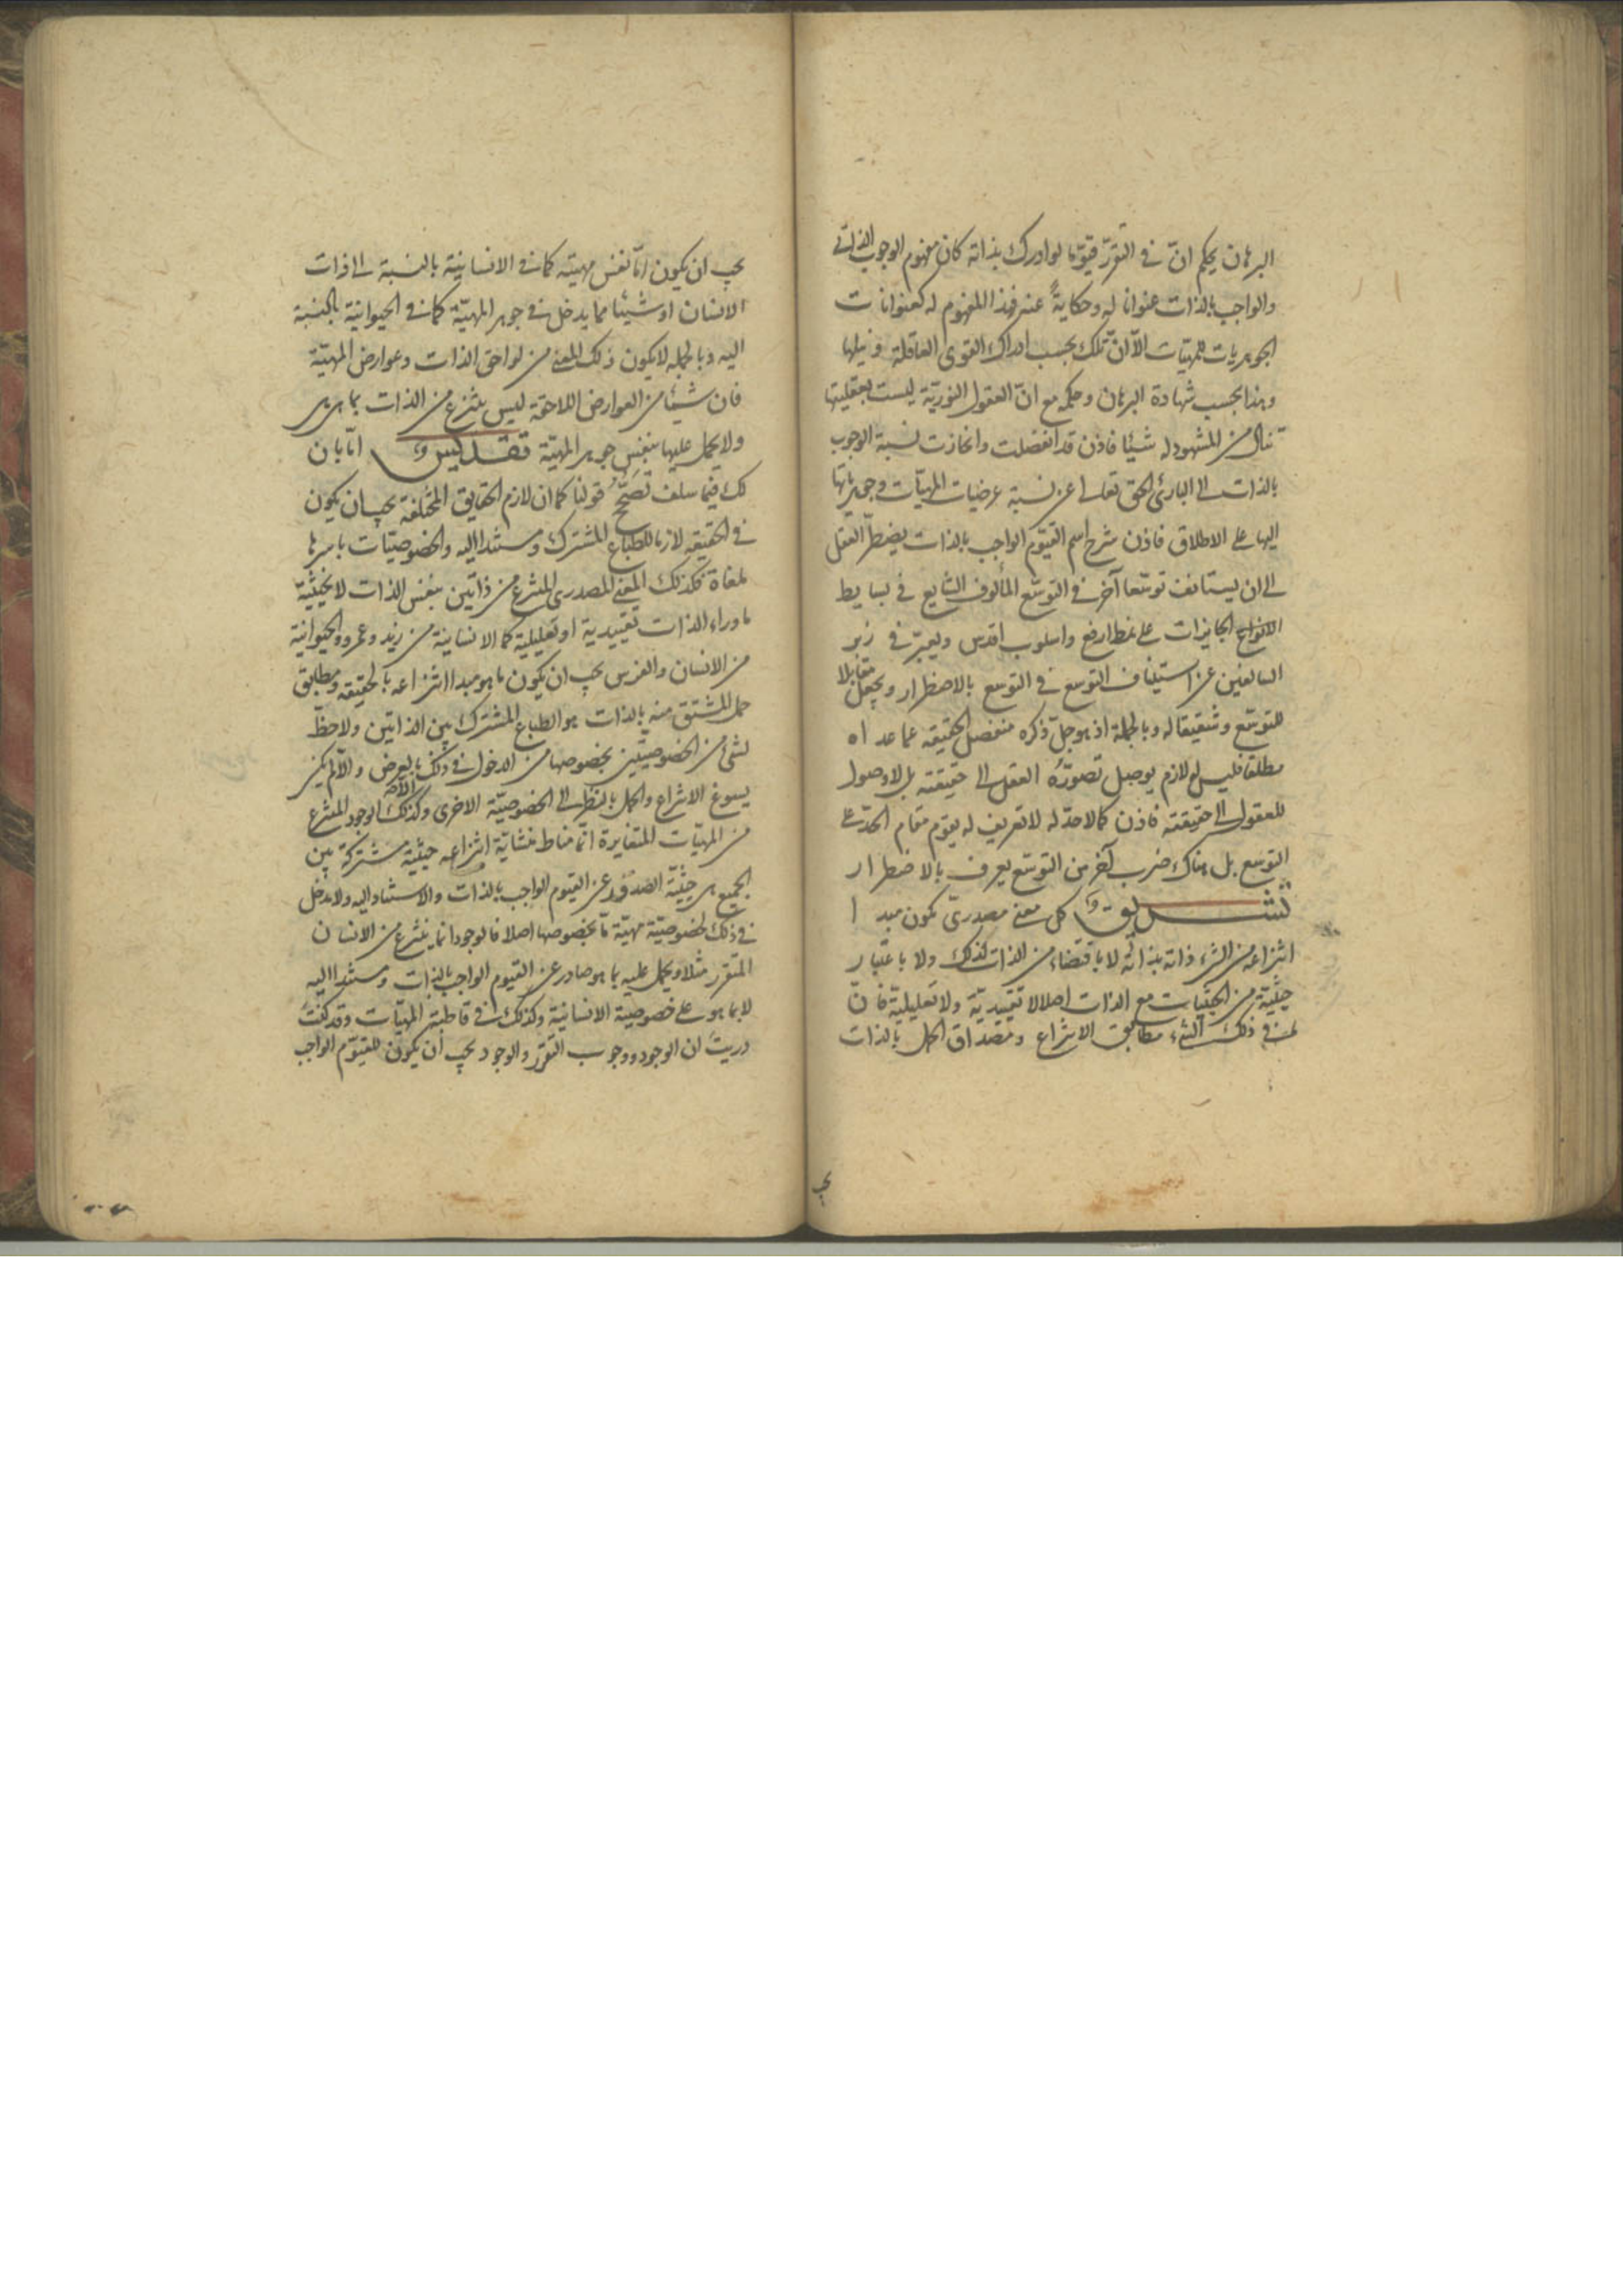 البرهان يحكم انّ في التقرّر قيّوما لو ادرك بذاته كان مفهوم الوجوب الذاتي
والواجب بالذات عنوانا له وحكايةً عنه فهذا المفهوم له كعنوانات
الجوهريات للمهيّات الّا انّ تلك بحسب ادراك القوى العاقلة ونيلها
وهذا بحسب شهادة البرهان وحكمه مع انّ العقول النوريّة ليست بعقليتها
تنال من المشهود له شيئا فاذن قد انفصلت وانحازت نسبة الوجوب
بالذات الى البارئ الحق تعالى عن نسبة عرضيات المهيّات وجوهرياتها
اليها على الاطلاق فاذن شرح اسم القيّوم الواجب بالذات يضطرّ العقل
الى ان يستانف توسّعا آخر في التوسّع المألوف الشايع في بسايط
الانواع الجايزات على نمط ارفع واسلوب اقدس ويعبّر في زبر
السالفين عن استيناف التوسع في التوسع بالاضطرار ويجعل مقابلا
للتوسّع وشقيقا له وبالجملة اذ هو جلّ ذكره منفصل الحقيقه عما عداه
مطلقا فليس له لازم يوصل تصوّرُه العقل الى حقيقته بل لا وصول
للعقول الى حقيقته فاذن كما لا حدّ له لا تعريف له يقوم مقام الحدّ على
التوسع بل هناك ضرب آخر من التوسّع يعرف بالاضطرار
تشريق كل معنى مصدريّ يكون مبدا
انتزاعه من الشيء ذاته بذاته لا باقتضاء من الذات لذلك ولا باعتبار
حيثيّة من الحيثيات مع الذات اصلا لا تقييديّة ولا تعليليّة فانّ
في ذلك الشيء مطابق الانتزاع ومصداق الحمل بالذات
يجب
يجب ان يكون امّا نفس مهيته كما في الانسانية بالنسبة الى ذات
الانسان او شيئا مما يدخل في جوهر المهيّة كما في الحيوانية بالنسبة
اليه وبالجملة لا يكون ذلك المعنى من لواحق الذات وعوارض المهيّة
فان شيئا من العوارض اللاحقة ليس ينتزع من الذات بما هي هي
ولا يحمل عليها بنفس جوهر المهيّة تقديس اما بان
لك فيما سلف تصحّح قولنا كما ان لازم الحقايق المختلفة يجب ان يكون
في الحقيقه لازما للطباع المشترك ومستندا اليه والخصوصيّات باسرها
ملغاة فكذلك المعنى المصدري المنتزع من ذاتين بنفس الذات لا بحيثيّة
ما وراء الذات تقييدية او تعليلية كما الانسانية من زيد وعمرو والحيوانية
من الانسان والفرس يجب ان يكون ما هو مبدا انتزاعه بالحقيقه ومطابق
حمل المشتق منه بالذات هو الطباع المشترك بين الذاتين ولا حظّ
لشئ من الخصوصيتين بخصوصها من الدخول في ذلك الّا بالعرض والّا لم يكن
يسوغ الانتزاع والحمل بالنظر الى الخصوصيّة الاخرى وكذلك الوجود المنتزع
من المهيّات المتغايرة انّما مناط منشايّة انتزاعه حيثيّة مشتركة بين
الجميع هي حيثيّة الصدور عن القيوم الواجب بالذات والاستناد اليه ولا مدخل
في ذلك لخصوصيّة مهيّة مّا بخصوصها اصلا فالوجود انما ينتزع من الانسان
المتقرر مثلا ويحمل عليه بما هو صادر عن القيوم الواجب بالذات ومستند اليه
لا بما هو على خصوصية الانسانية وكذلك في قاطبة المهيّات وقد كنت
دريت ان الوجود ووجوب التقرّر والوجود يجب أن يكون للقيّوم الواجب